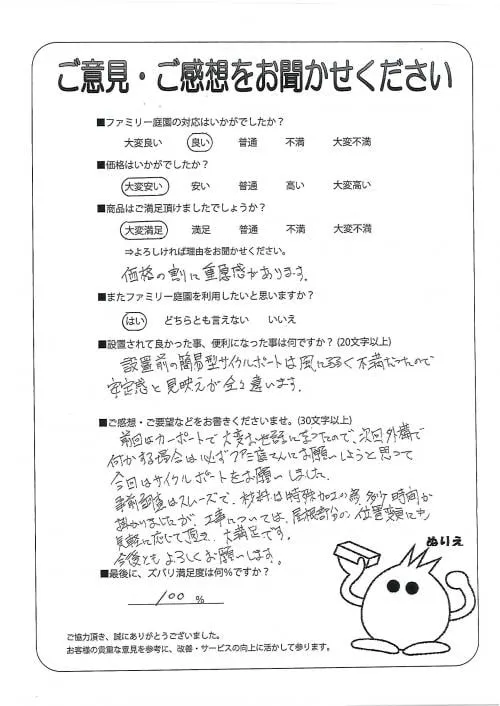 ご意見・ご感想をお聞かせください
■ファミリー庭園の対応はいかがでしたか？
大変良い 良い 普通 不満 大変不満
■価格はいかがでしたか？
大変安い 安い 普通 高い 大変高い
■商品はご満足頂けましたでしょうか？
大変満足 満足 普通 不満 大変不満
⇒よろしければ理由をお聞かせください。
価格の割に重厚感があります。
■またファミリー庭園を利用したいと思いますか？
はい どちらとも言えない いいえ
■設置されて良かった事、便利になった事は何ですか？(20文字以上)
設置前の簡易型サイクルポートは風に弱く不満だったので
安定感と見映えが全く違います。
■ご感想・ご要望などをお書きくださいませ。(30文字以上)
前回はカーポートで大変お世話になったので、次回外構で
何かする場合は必ずファミ庭さんにお願いしようと思って
今回はサイクルポートをお願いしました。
事前調査はスムーズで、材料は特殊加工の為、多少時間が
掛かりましたが、工事については、屋根部分の位置変更にも
気軽に応じて頂き、大満足です。
今後ともよろしくお願いします。
■最後に、ズバリ満足度は何%ですか？
100 %
ぬりえ
ご協力頂き、誠にありがとうございました。
お客様の貴重な意見を参考に、改善・サービスの向上に活かして参ります。